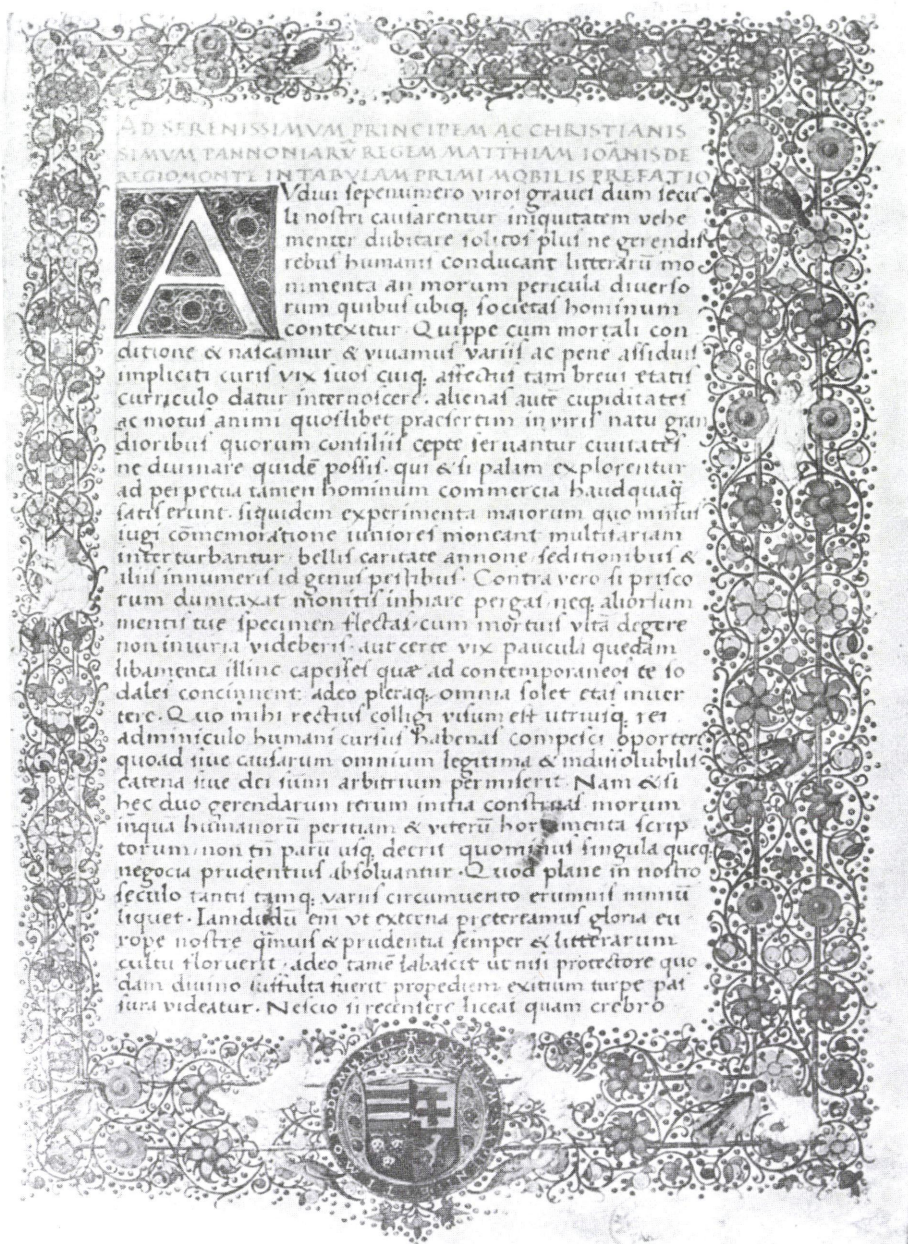 AD SERENISSIMVM PRINCIPEM AC CHRISTIANIS
SIMVM PANNONIARV̄ REGEM MATTHIAM IOĀNIS DE
REGIOMONTE IN TABVLAM PRIMI MOBILIS PREFATIO
AVdiui sepenumero viros graues dum secu
li nostri causarentur iniquitatem vehe
menter dubitare solitos plus ne gerendis
rebus humanis conducant litterarū mo
nimenta an morum pericula diverso
rum quibus ubiq; societas hominum
contexitur. Quippe cum mortali con
ditione & nascamur & vivamus variis ac pene assiduis
impliciti curis vix suos cuiq; affectus tam brevi etatis
curriculo datur internoscere. alienas autē cupiditates
ac motus animi quoslibet praesertim in viris natu gran
dioribus quorum consiliis cepte servantur civitates
ne divinare quidē possis. qui & si palam explorentur
ad perpetua tamen hominum commercia haudquaq̄
satis erunt. siquidem experimenta maiorum quo minus
iugi cōmemoratione iuniores moneant multifariam
interturbantur. bellis caritate annone seditionibus &
aliis innumeris id genus pestibus. Contra vero si prisco
rum dumtaxat monitis inhiare pergas. neq; aliorsum
mentis tue specimen flectas. cum mortuis vitā degere
non iniuria videberis. aut certe vix paucula quedam
libamenta illinc capesses quæ ad contemporaneos te so
dales concinnent: adeo pleraq; omnia solet etas inver
tere. Quo mihi rectius colligi visum est utriusq; rei
adminiculo humani cursus habenas compesci oportere
quoad sive causarum omnium legitima & indissolubilis
catena sive dei sūmi arbitrium permiserit. Nam & si
hec duo gerendarum rerum initia constituas morum
inqua humanorū periciam & veterū hortamenta scrip
torum. non tn̄ parū usq; decrit quominus singula queq;
negocia prudentius absolvantur. Quod plane in nostro
seculo tantis tamq; variis circumvento erumnis nimiū
liquet. Iamdudū eni vt externa pretereamus gloria eu
rope nostre q̄mvis & prudentia semper & litterarum
cultu floruerit. adeo tamē labascit ut nisi protectore quo
dam divino suffulta fuerit propediem exitium turpe pas
sura videatur. Nescio si recensere liceat quam crebro